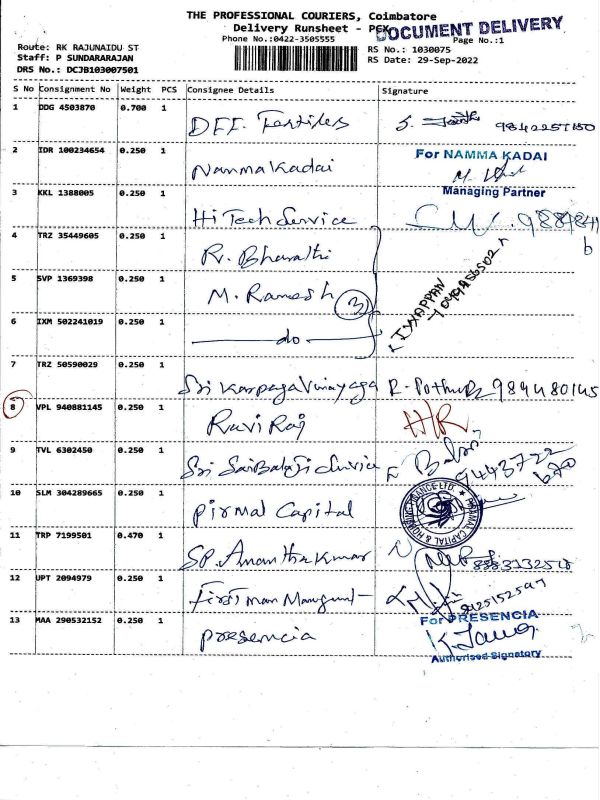 THE PROFESSIONAL COURIERS, Coimbatore
Delivery Runsheet - PEX
DOCUMENT DELIVERY
Phone No.:0422-3505555
Page No.:1
Route: RK RAJUNAIDU ST
RS No.: 1030075
Staff: P SUNDARARAJAN
RS Date: 29-Sep-2022
DRS No.: DCJB103007501
S No Consignment No Weight PCS Consignee Details Signature
1 DDG 4503870 0.700 1
2 IDR 100234654 0.250 1 Namma Kadai For NAMMA KADAI
Managing Partner
3 KKL 1388005 0.250 1 Hi Tech Service
4 TRZ 35449605 0.250 1 R. Bharathi
5 SVP 1369398 0.250 1 M. Ramesh 3 IYYAPPAN
6 IXM 502241019 0.250 1 do
7 TRZ 50590029 0.250 1 Sri Karpaga Vinayaga
8 VPL 940881145 0.250 1 Ravi Raj H/R
9 TVL 6302450 0.250 1 Sri Sai Balaji Service
10 SLM 304289665 0.250 1 Pirmal Capital
PIRAMAL CAPITAL & HOUSING FINANCE LTD.
11 TRP 7199501 0.470 1 SP. Anantha Kumar
12 UPT 2094979 0.250 1
13 MAA 290532152 0.250 1 presencia For PRESENCIA
Authorised Signatory